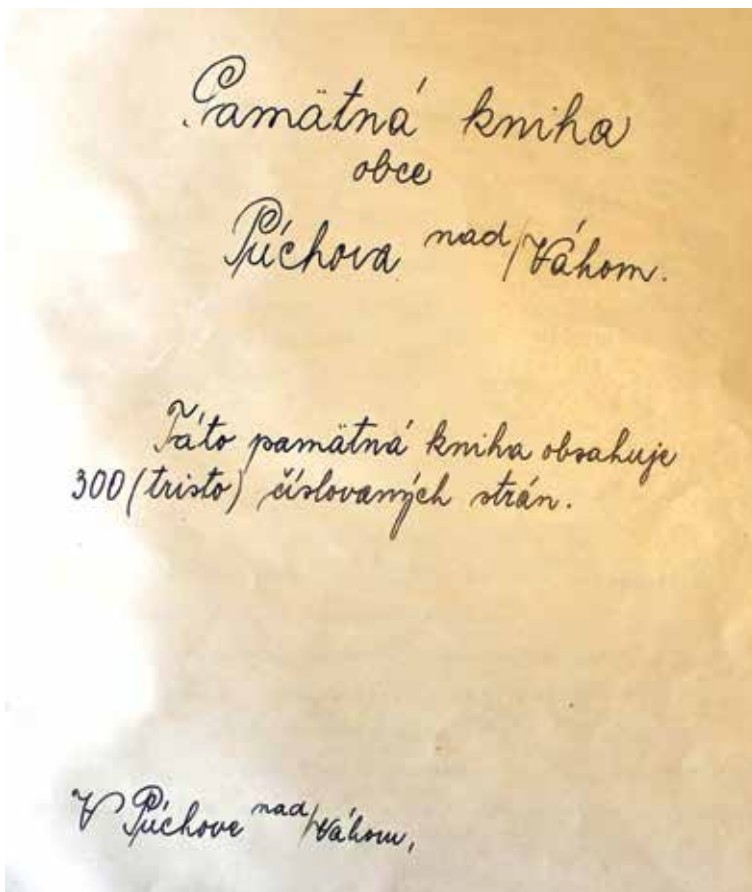 Pamätná kniha
obce
Púchova nad/Váhom.
Táto pamätná kniha obsahuje
300 (tristo) číslovaných strán.
V Púchove nad/Váhom,